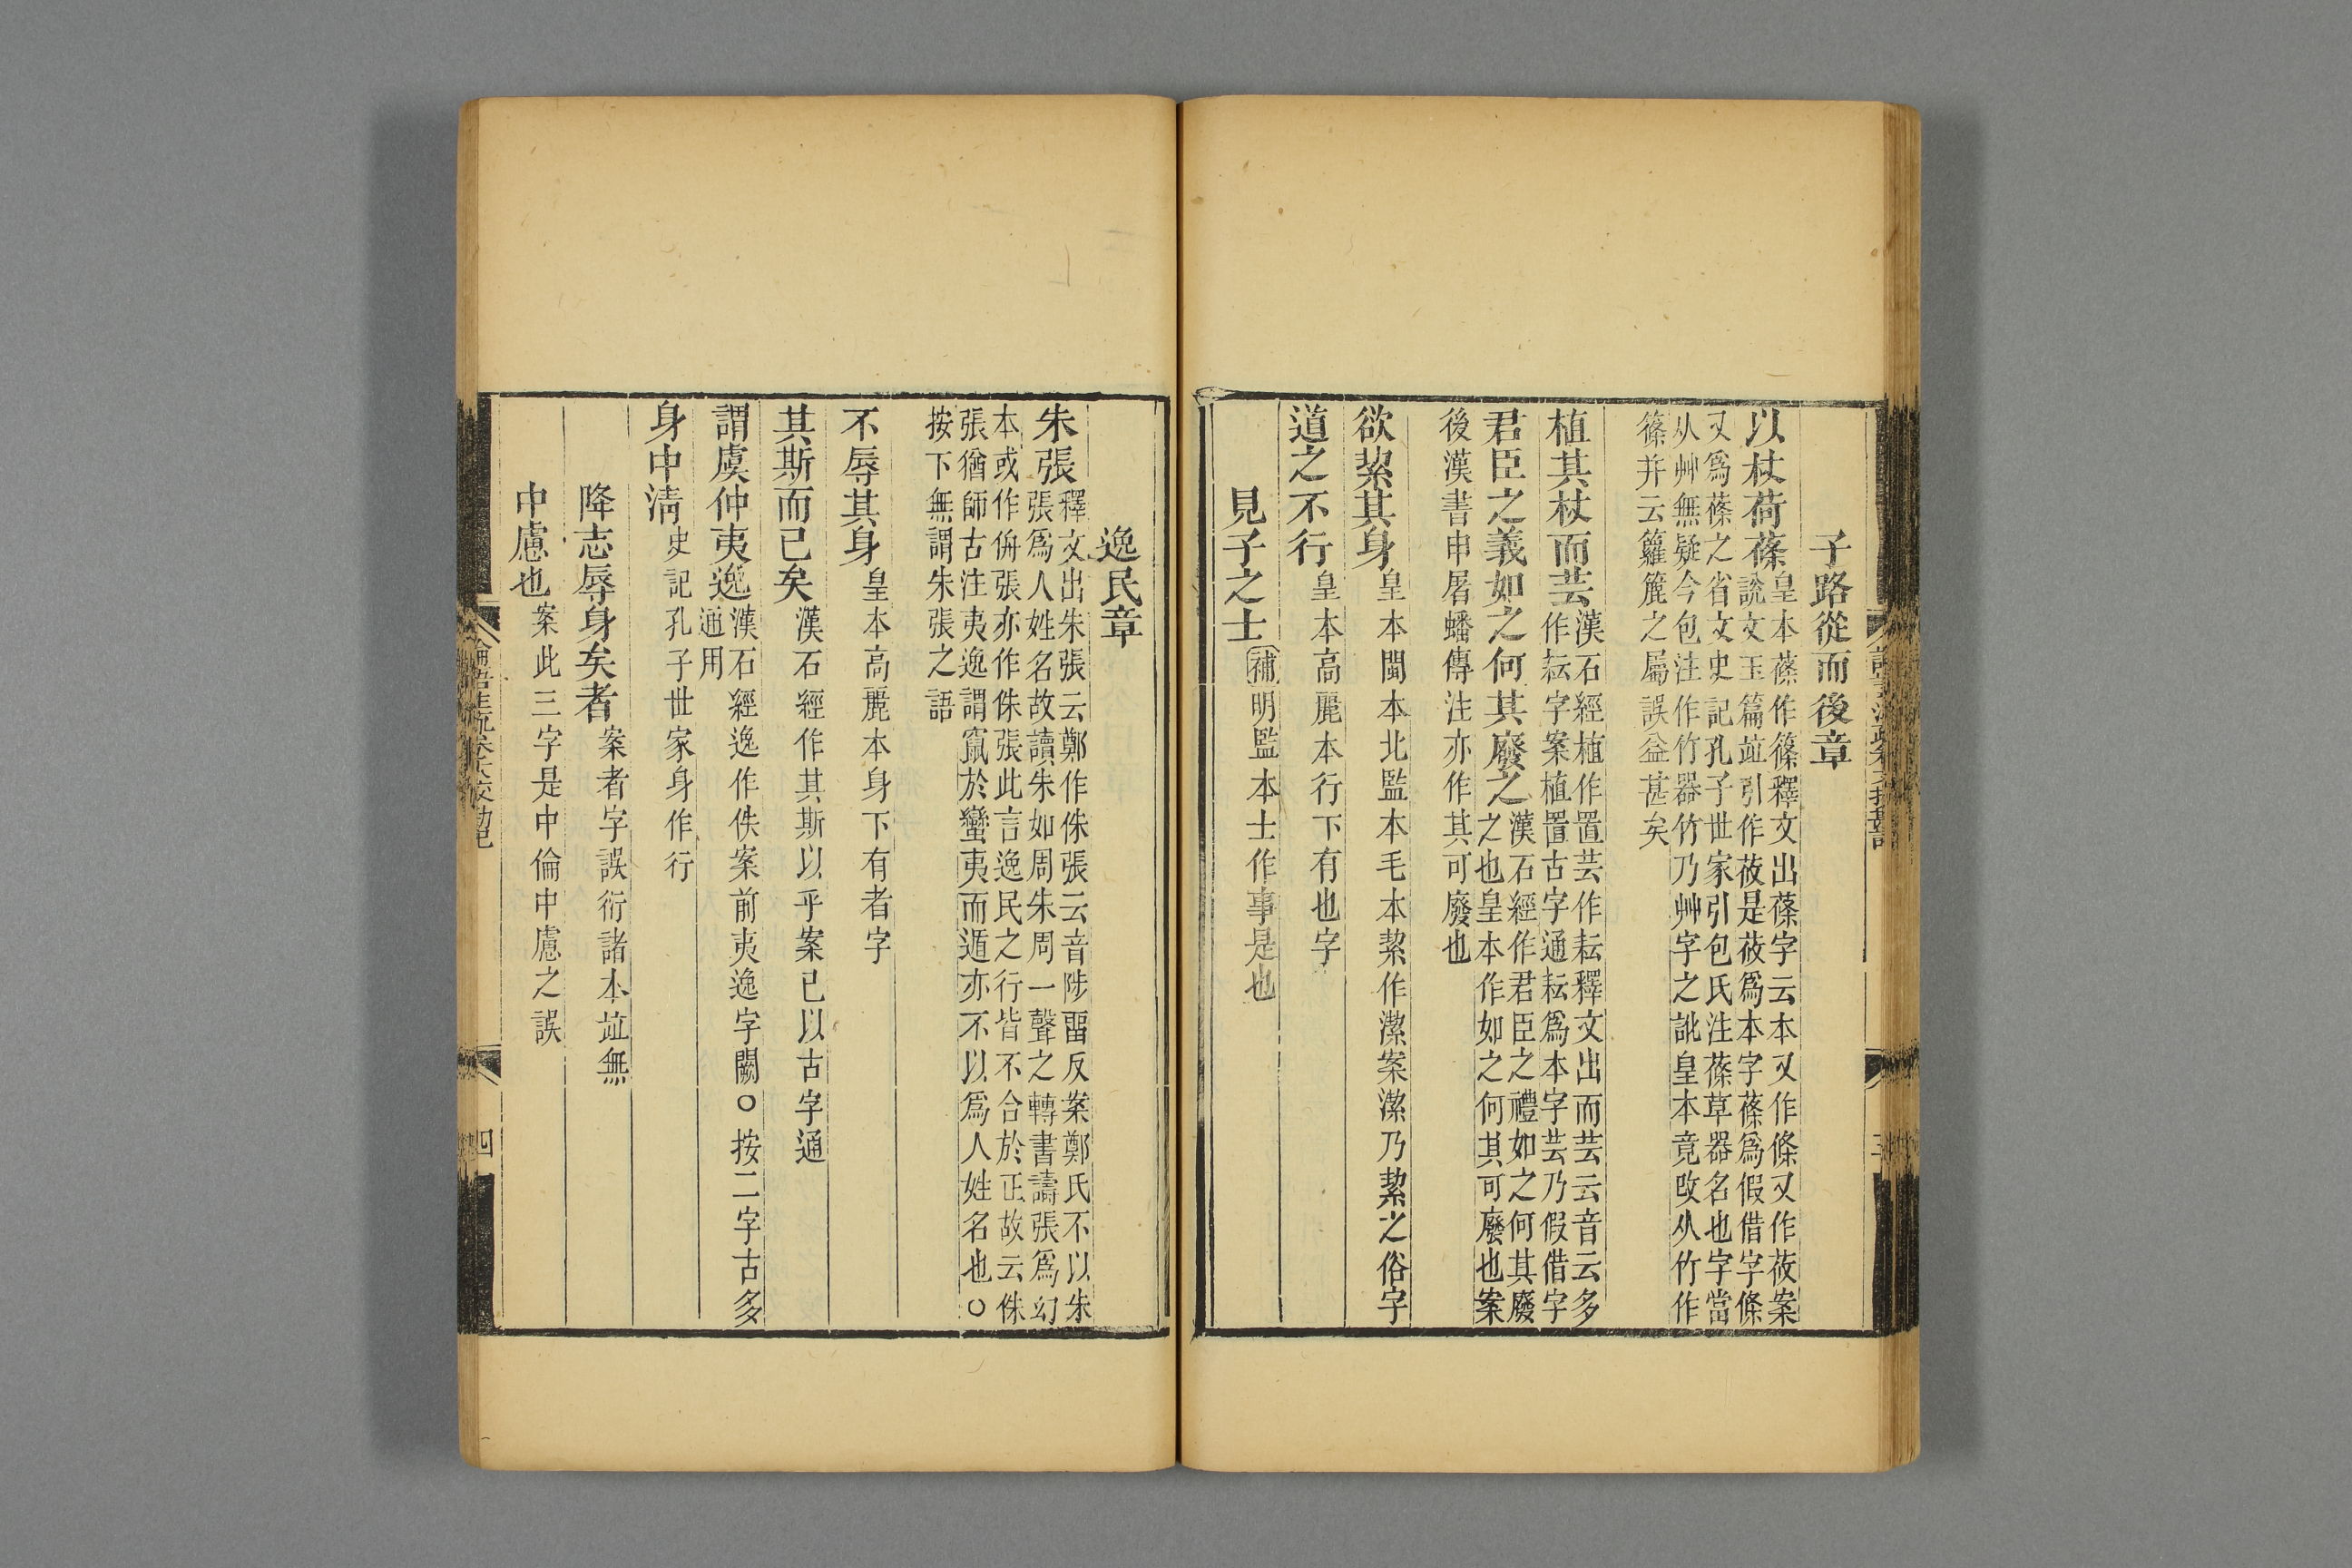 子路從而後章
以杖荷蓧皇本蓧作篠釋文出蓧字云本又作條又作莜案
說文玉篇竝引作莜是莜爲本字蓧爲假借字條
又爲蓧之省文史記孔子世家引包氏注蓧草器名也字當
从艸無疑今包注作竹器竹乃艸字之訛皇本竟改从竹作
篠并云籮簏之屬誤益甚矣
植其杖而芸漢石經植作置芸作耘釋文出而芸云音云多
作耘字案植置古字通耘爲本字芸乃假借字
君臣之義如之何其廢之漢石經作君臣之禮如之何其廢
之也皇本作如之何其可廢也案
後漢書申屠蟠傳注亦作其可廢也
欲絜其身皇本閩本北監本毛本絜作潔案潔乃絜之俗字
道之不行皇本高麗本行下有也字
見子之士補明監本士作事是也
逸民章
朱張釋文出朱張云鄭作侏張云音陟留反案鄭氏不以朱
張爲人姓名故讀朱如周朱周一聲之轉書譸張爲幻
本或作侜張亦作侏張此言逸民之行皆不合於正故云侏
張猶師古注夷逸謂竄於蠻夷而遁亦不以爲人姓名也○
按下無謂朱張之語
不辱其身皇本高麗本身下有者字
其斯而已矣漢石經作其斯以乎案已以古字通
謂虞仲夷逸漢石經逸作佚案前夷逸字闕○按二字古多
通用
身中淸史記孔子世家身作行
降志辱身矣者案者字誤衍諸本竝無
中慮也案此三字是中倫中慮之誤
論語注疏卷十八校勘記
四